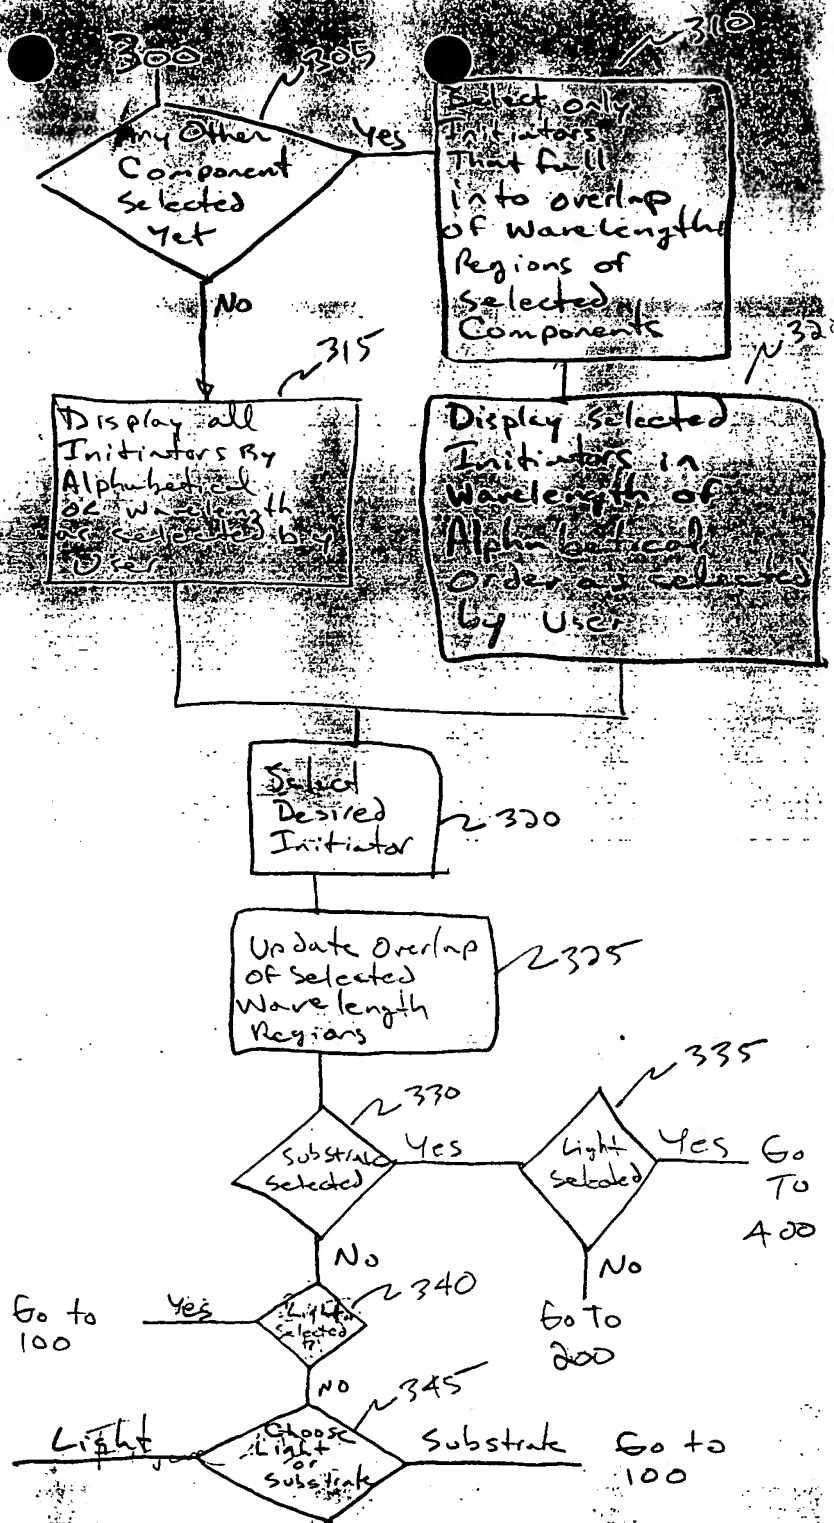 300
305
Any Other
Component
Selected
Yet
Yes
310
Select only
Initiators
That fall
into overlap
of wavelengths
Regions of
Selected
Components
No
315
Display all
Initiators By
Alphabetical
or wavelength
as selected by
User
32
Display selected
Initiators in
Wavelength of
Alphabetical
Order as selected
by User
Select
Desired
Initiator
320
Update Overlap
of Selected
Wavelength
Regions
325
330
Substrate
Selected
Yes
335
Light
Selected
Yes
Go
To
400
No
Go To
200
No
340
Light
Selected
?
Yes
Go to
100
No
345
Choose
Light
or
Substrate
Light
Substrate
Go to
100